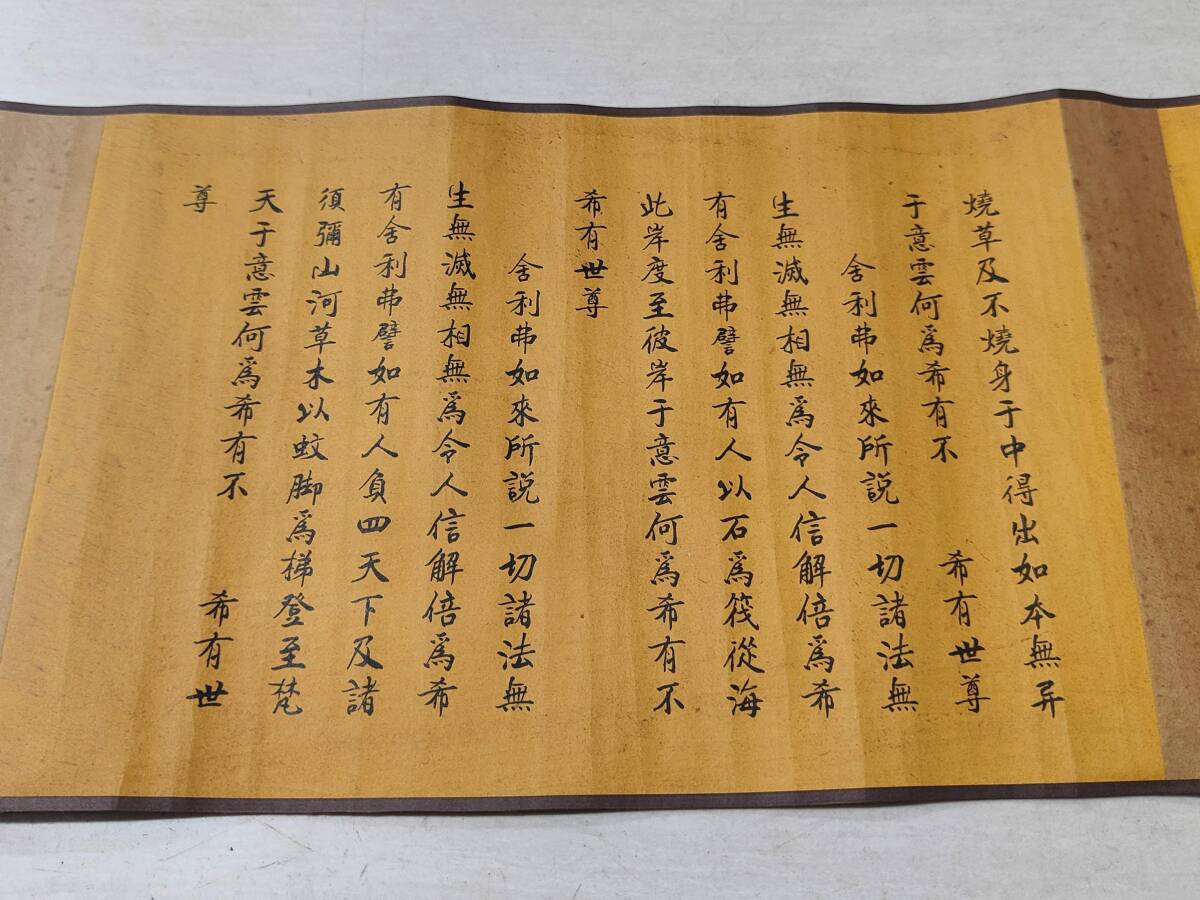 燒草及不燒身于中得出如本無异
于意雲何爲希有不 希有世尊
舍利弗如來所説一切諸法無
生無滅無相無爲令人信解倍爲希
有舍利弗譬如有人以石爲筏從海
此岸度至彼岸于意雲何爲希有不
希有世尊
舍利弗如來所説一切諸法無
生無滅無相無爲令人信解倍爲希
有舍利弗譬如有人負四天下及諸
須彌山河草木以蚊脚爲梯登至梵
天于意雲何爲希有不 希有世
尊